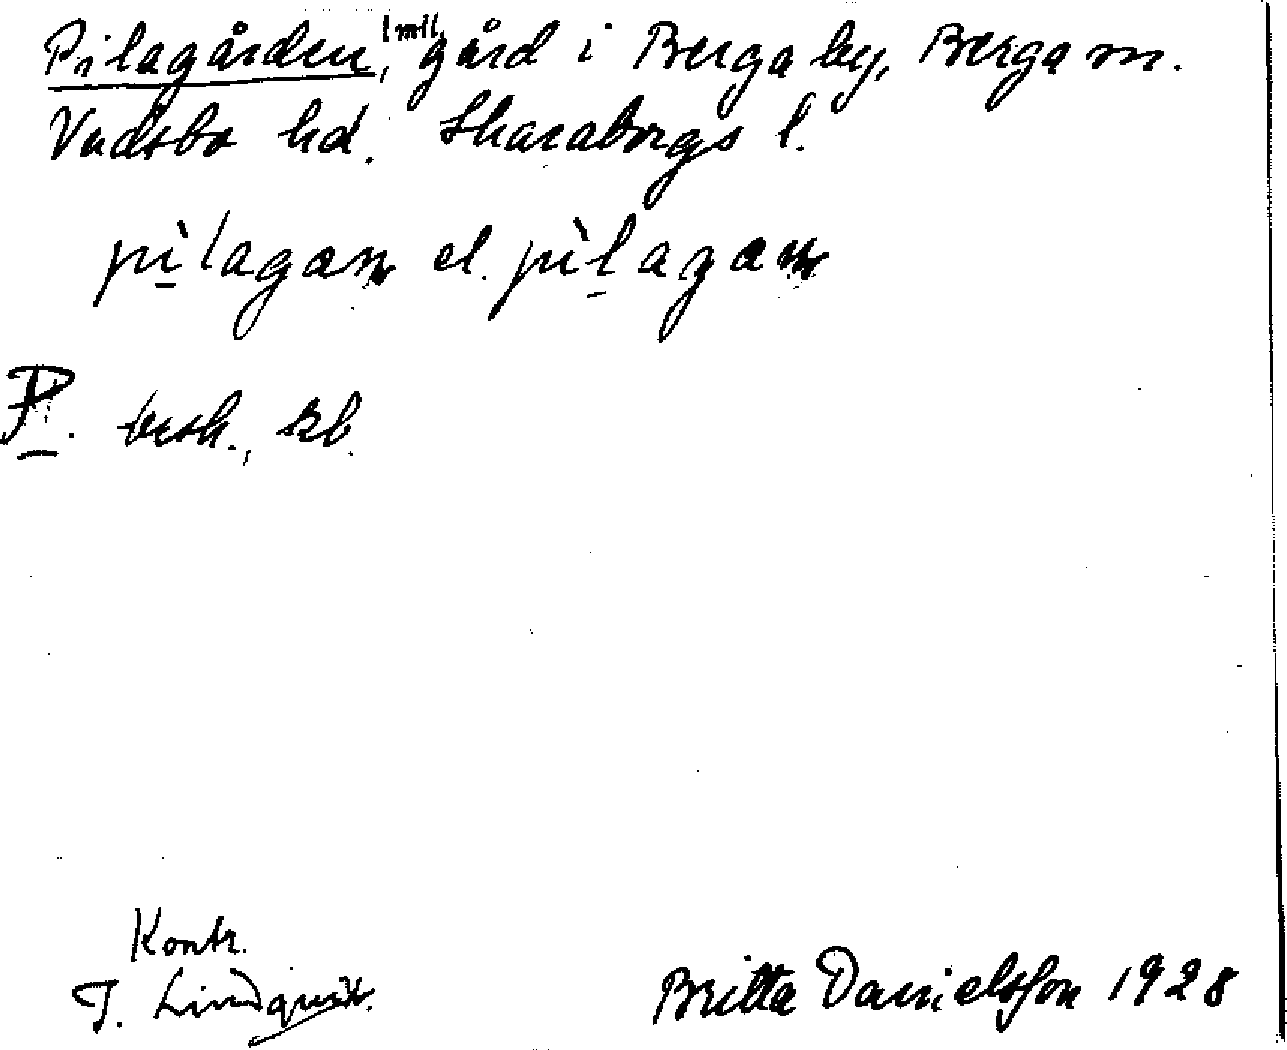 Pilagården, 1 mtl, gård i Berga by, Berga sn.
Vadsbo hd. Skaraborgs l.
pìlagan el. pìlagan
P. besk., kb.
Kontr.
J. Lindquist.
Britta Danielsson 1928